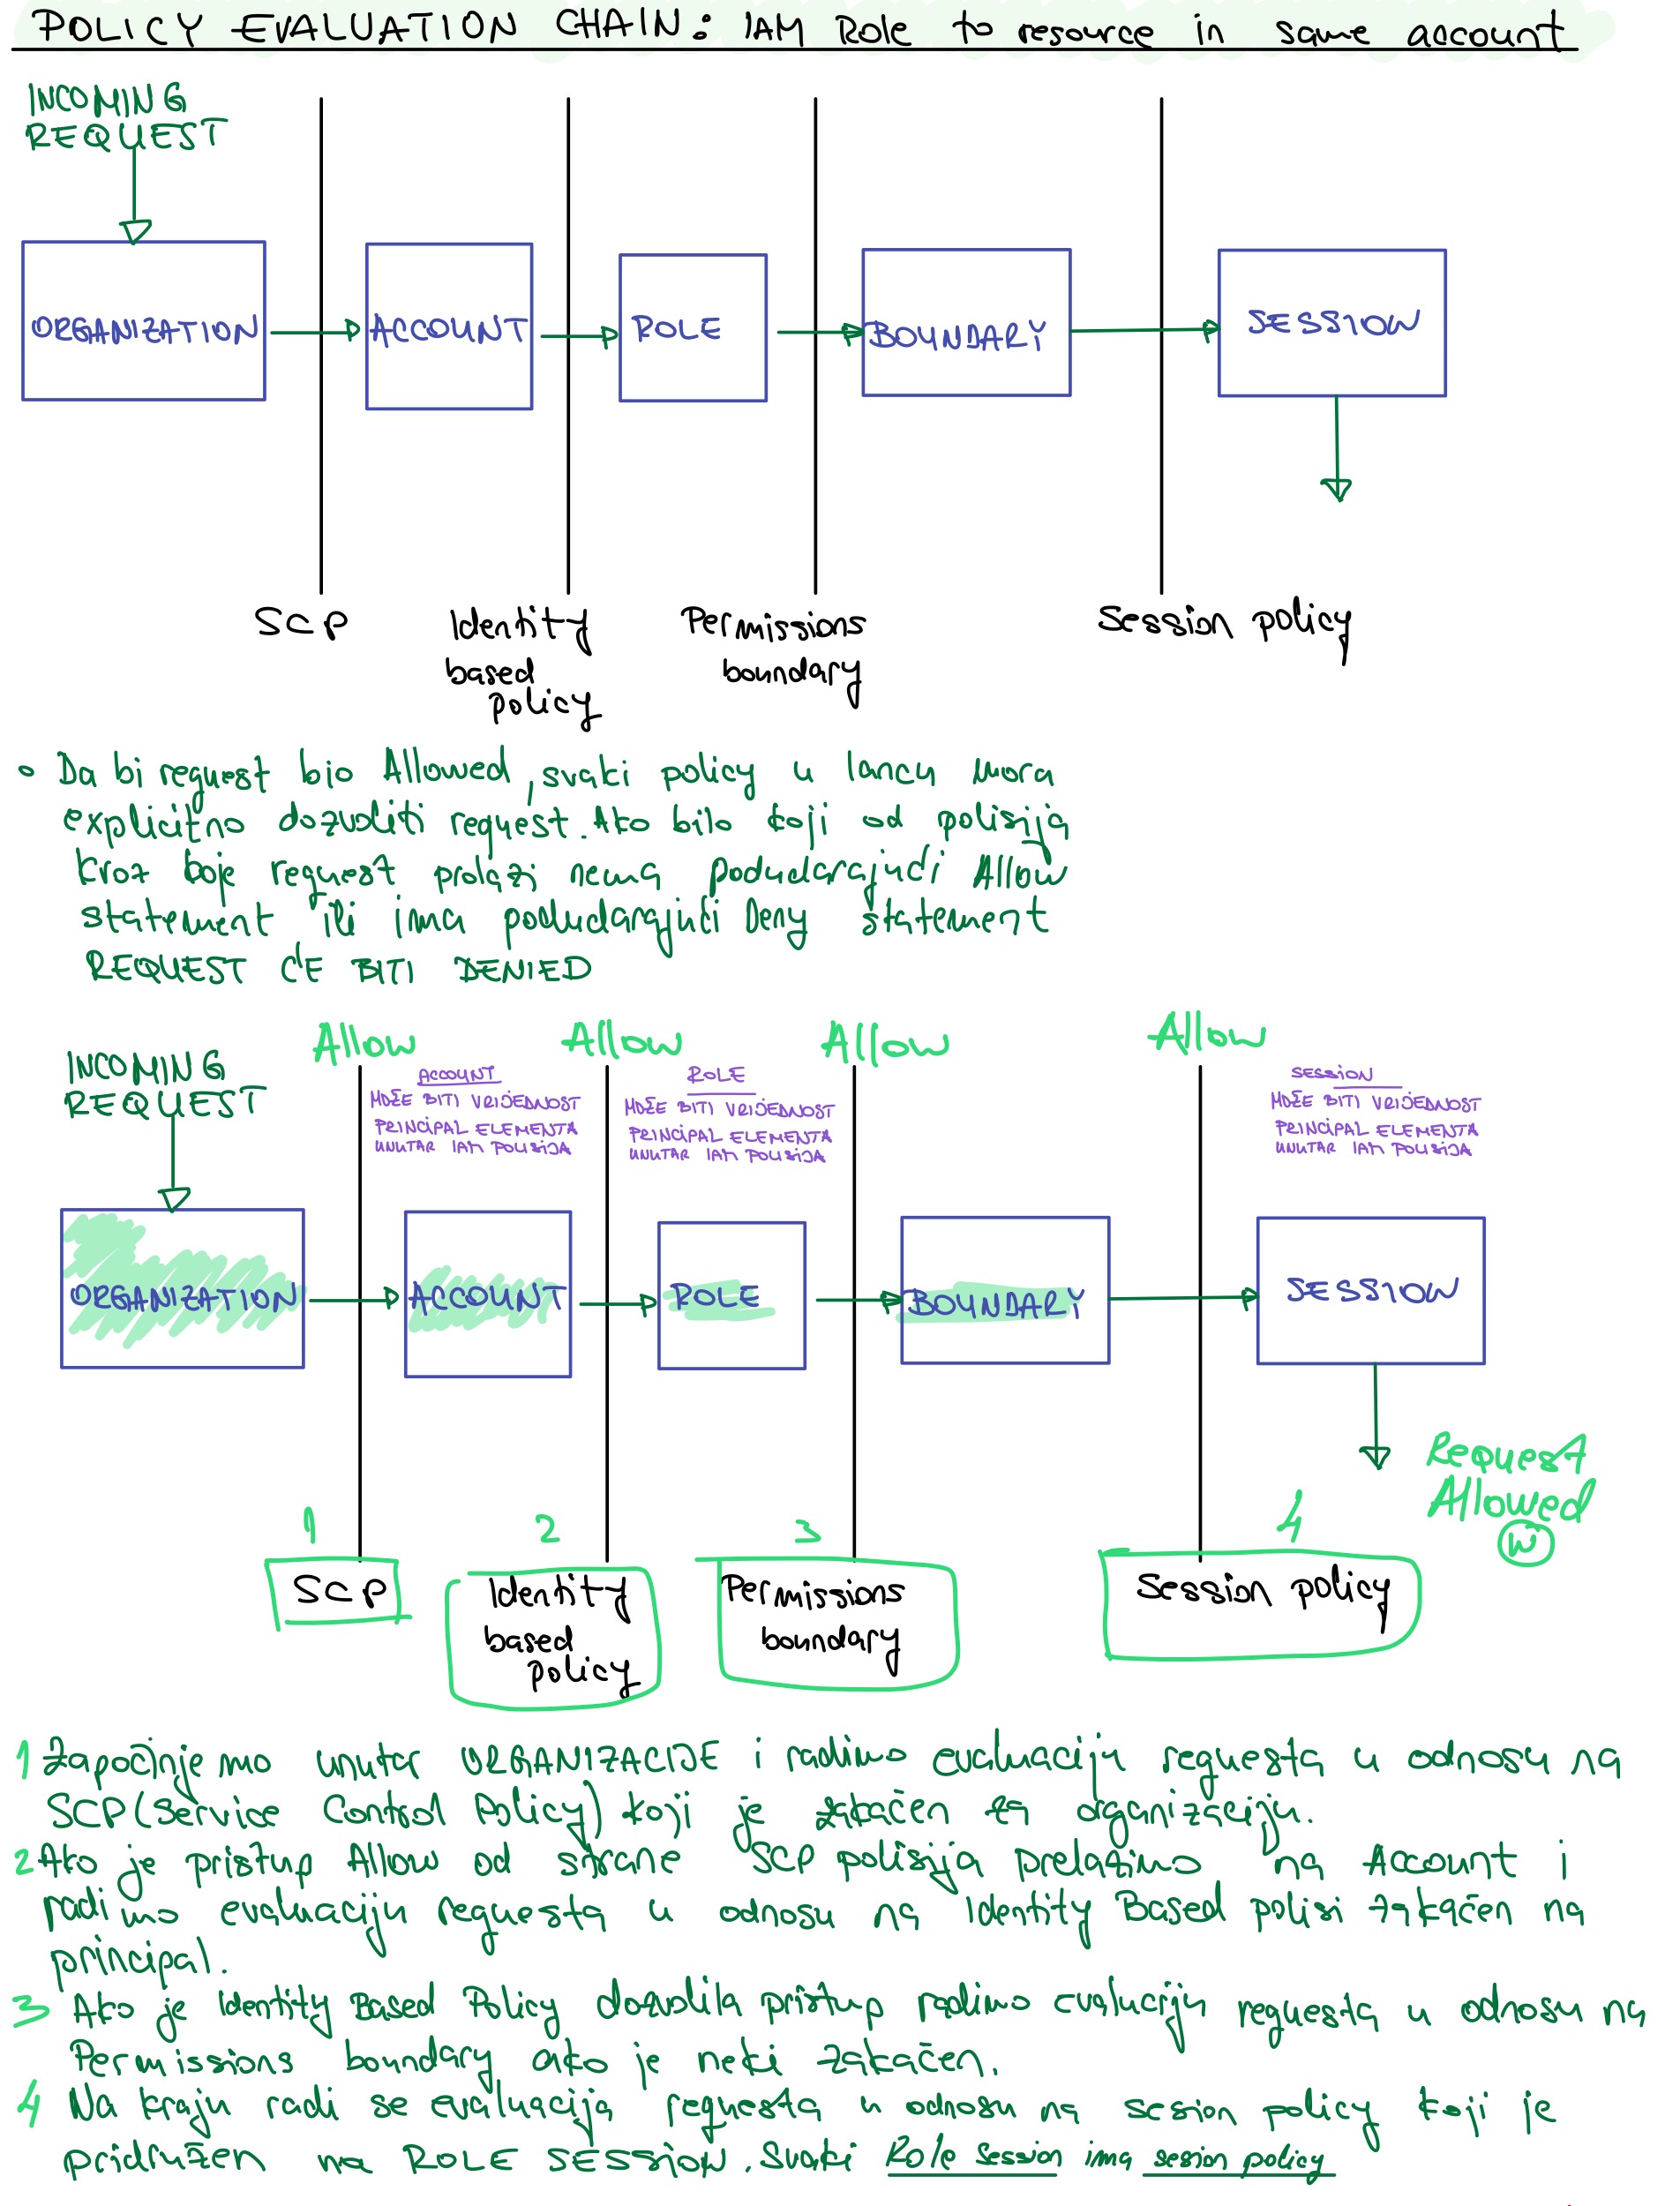 POLICY EVALUATION CHAIN: IAM Role to resource in same account
INCOMING
REQUEST
ORGANIZATION
ACCOUNT
ROLE
BOUNDARY
SESSION
SCP
Identity
based
policy
Permissions
boundary
Session policy
• Da bi request bio Allowed, svaki policy u lancu mora
explicitno dozvoliti request. Ako bilo koji od polisija
kroz koje request prolazi nema podudarajući Allow
statement ili ima podudarajući Deny statement
REQUEST ĆE BITI DENIED
Allow
Allow
Allow
Allow
INCOMING
REQUEST
ACCOUNT
MOŽE BITI VRIJEDNOST
PRINCIPAL ELEMENTA
UNUTAR IAM POLISIJA
ROLE
MOŽE BITI VRIJEDNOST
PRINCIPAL ELEMENTA
UNUTAR IAM POLISIJA
SESSION
MOŽE BITI VRIJEDNOST
PRINCIPAL ELEMENTA
UNUTAR IAM POLISIJA
ORGANIZATION
ACCOUNT
ROLE
BOUNDARY
SESSION
Request
Allowed
1
2
3
4
SCP
Identity
based
policy
Permissions
boundary
Session policy
1 Započinjemo unutar ORGANIZACIJE i radimo evaluaciju requesta u odnosu na
SCP (Service Control Policy) koji je zakačen za organizaciju.
2 Ako je pristup Allow od strane SCP polisija prelazimo na Account i
radimo evaluaciju requesta u odnosu na Identity Based polisi zakačen na
principal.
3 Ako je Identity Based Policy dozvolila pristup radimo evaluciju requesta u odnosu na
Permissions boundary ako je neki zakačen.
4 Na kraju radi se evaluacija requesta u odnosu na sesion policy koji je
pridružen na ROLE SESSION. Svaki Role Session ima sesion policy